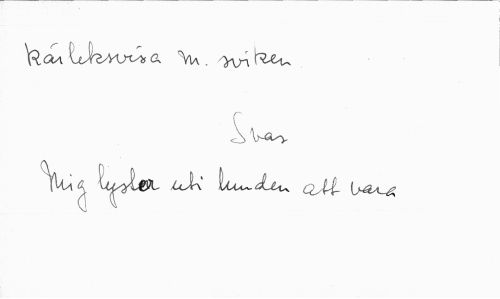 Kärleksvisa m. sviken
Svar
Mig lyster uti lunden att vara